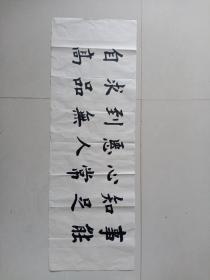 事能
知足
心常
愜人
到無
求品
自高